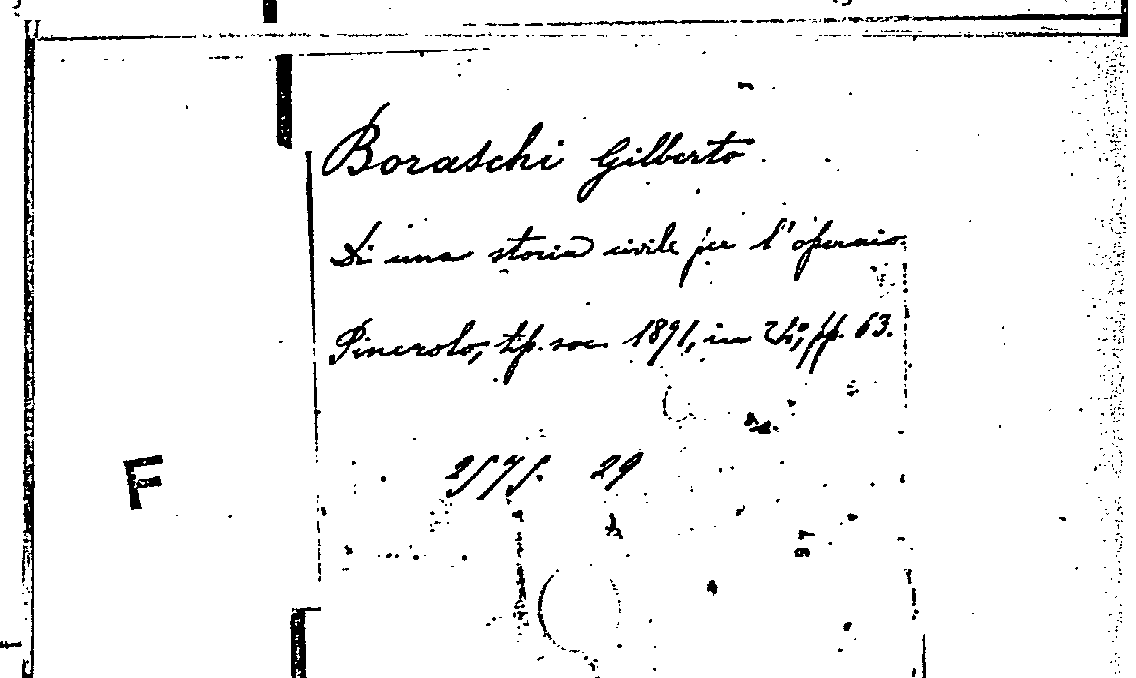 Boraschi Gilberto
Di una storia civile per l'operaio
Pinerolo, tip. soc. 1891, in 24°, pp. 63.
F
2575. 29
97